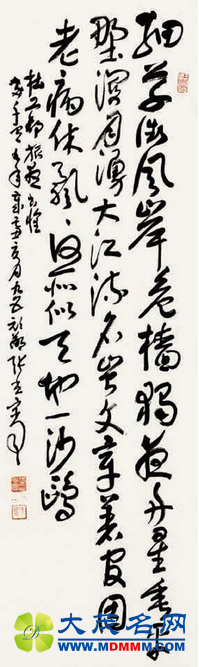 細草微风岸危樯獨夜舟星垂平
野濶月湧大江流名豈文章著官因
老病休飘飘何所似天地一沙鷗
杜工部旅夜書懷
大茂名网
WWW.MDMMM.COM